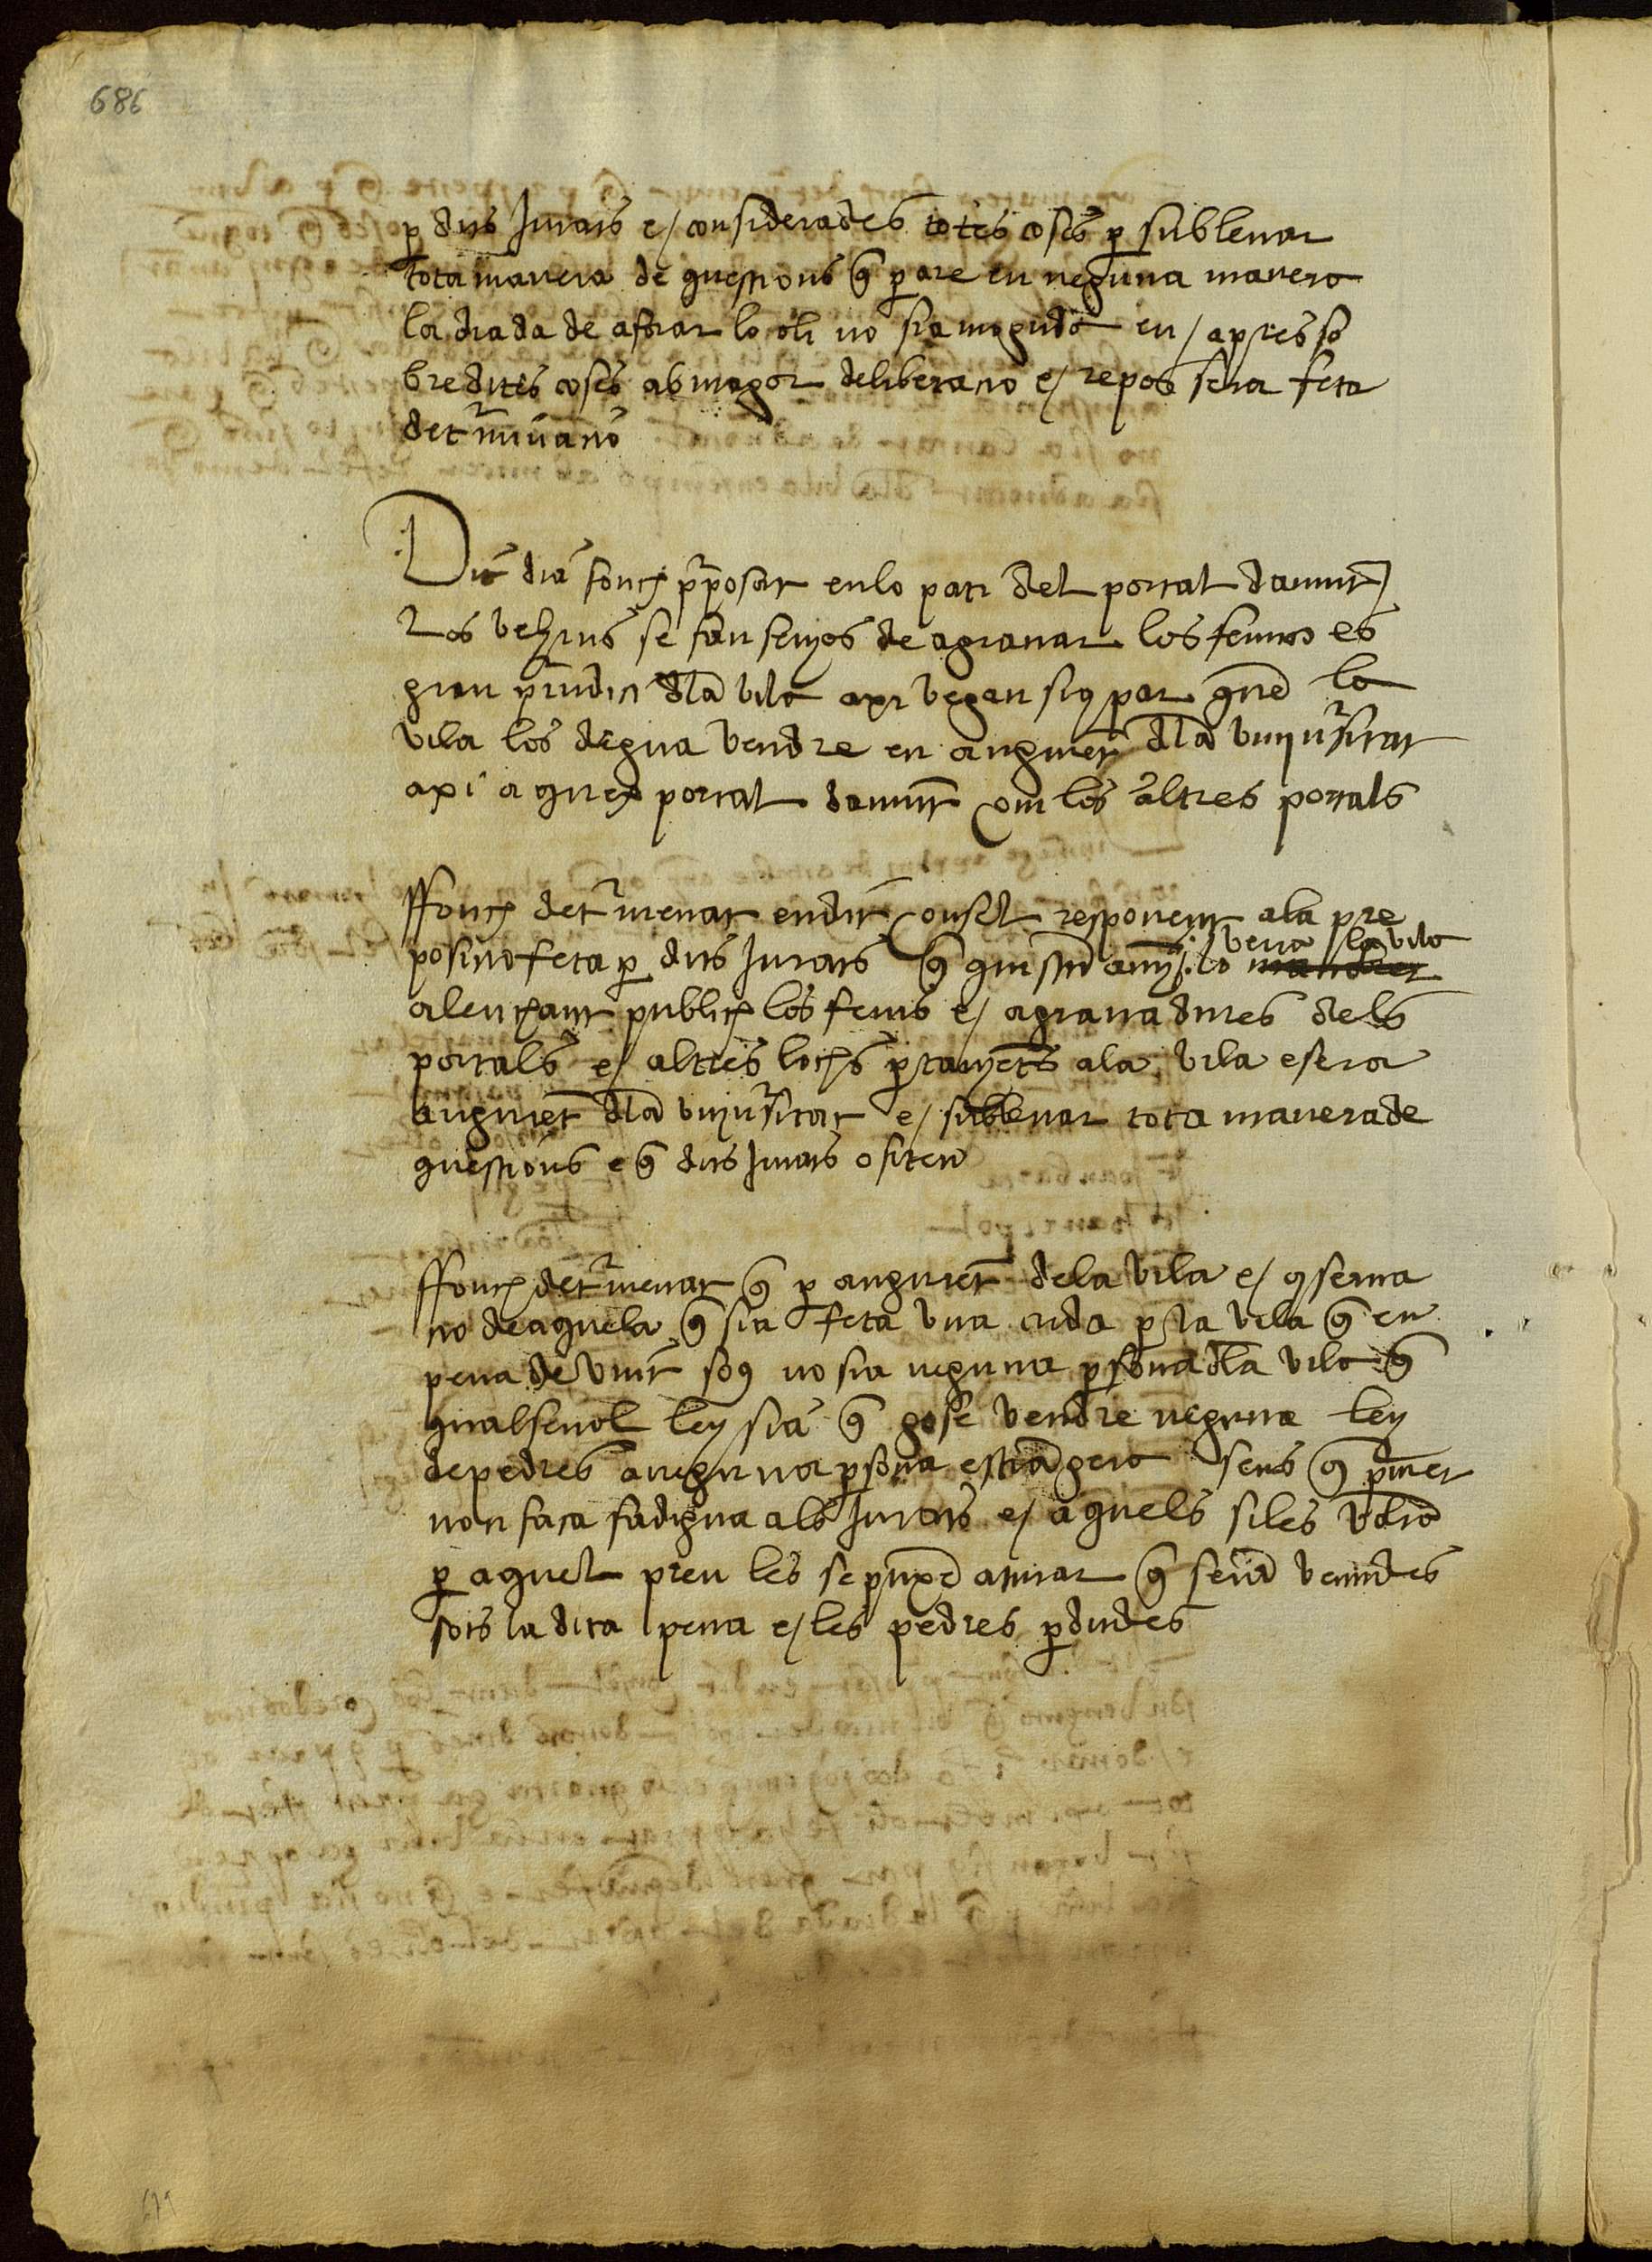 686
p dits Jurats e/ considerades totes coses p sublevar
tota manera de questions q̃ p are en neguna manera
la diada de aforar lo oli no sia moguda en / apres so
bre dites coses ab magor deliberacio e/ repos sera feta
det̃minacio
Dit dia fonch p̃posat en lo pati del portal damunt
Los vehins se fan senyos de agranar los femios es
gran p̃iudici dl̃a vila axi vegan si 9 par que la
vila los degua vendre en augmẽt dl̃a vniṽsitat
axi aquex portal damũt com los altres portals
ffonch det̃menat en dit Consell responent a la pre
posicio feta p dits Jurats q̃ vena la vila
al enchant publich los fems e/ agranadures dels
portals e/ altres lochs ptanyẽts a la vila e sera
augmẽt dl̃a vniṽsitat e/ sublevar tota manera de
questions e q̃ dits Jurats o fiten
ffonch det̃menat q̃ p augmẽt de la vila e/ 9serva
cio de aquela q̃ sia feta vna crida p la vila q̃ en
pena de vint so9 no sia neguna psona dl̃a vila q̃
qualsevol ley sia q̃ gose vendre neguna ley
de pedres a neguna psona estrãgera sens q̃ p̃mer
non faca fadigua als Jurats e/ aquels si les volrã
p aquel preu les se puxẽ aturar q̃ serã venudes
sots la dita pena e/ les pedres pdudes